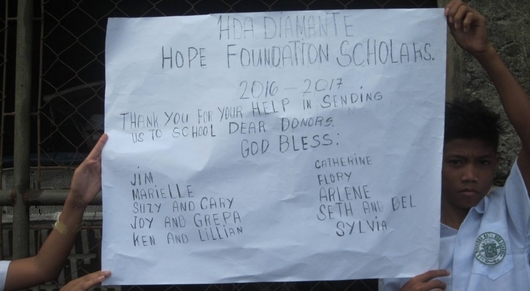 HDA DIAMANTE
HOPE FOUNDATION SCHOLARS.
2016-2017
THANK YOU FOR YOUR HELP IN SENDING
US TO SCHOOL DEAR DONORS
GOD BLESS:
JIM
MARIELLE
SUZY AND CARY
JOY AND GREPA
KEN AND LILLIAN
CATHERINE
FLORY
ARLENE
SETH AND DEL
SYLVIA